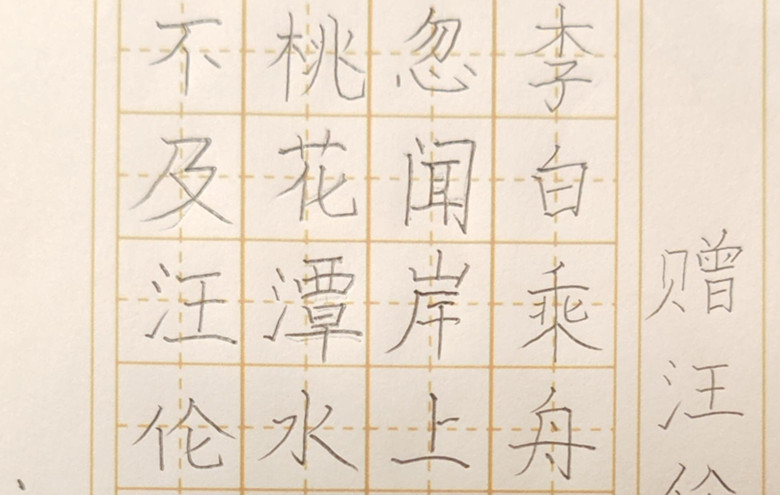 赠汪伦
李白乘舟
忽闻岸上
桃花潭水
不及汪伦